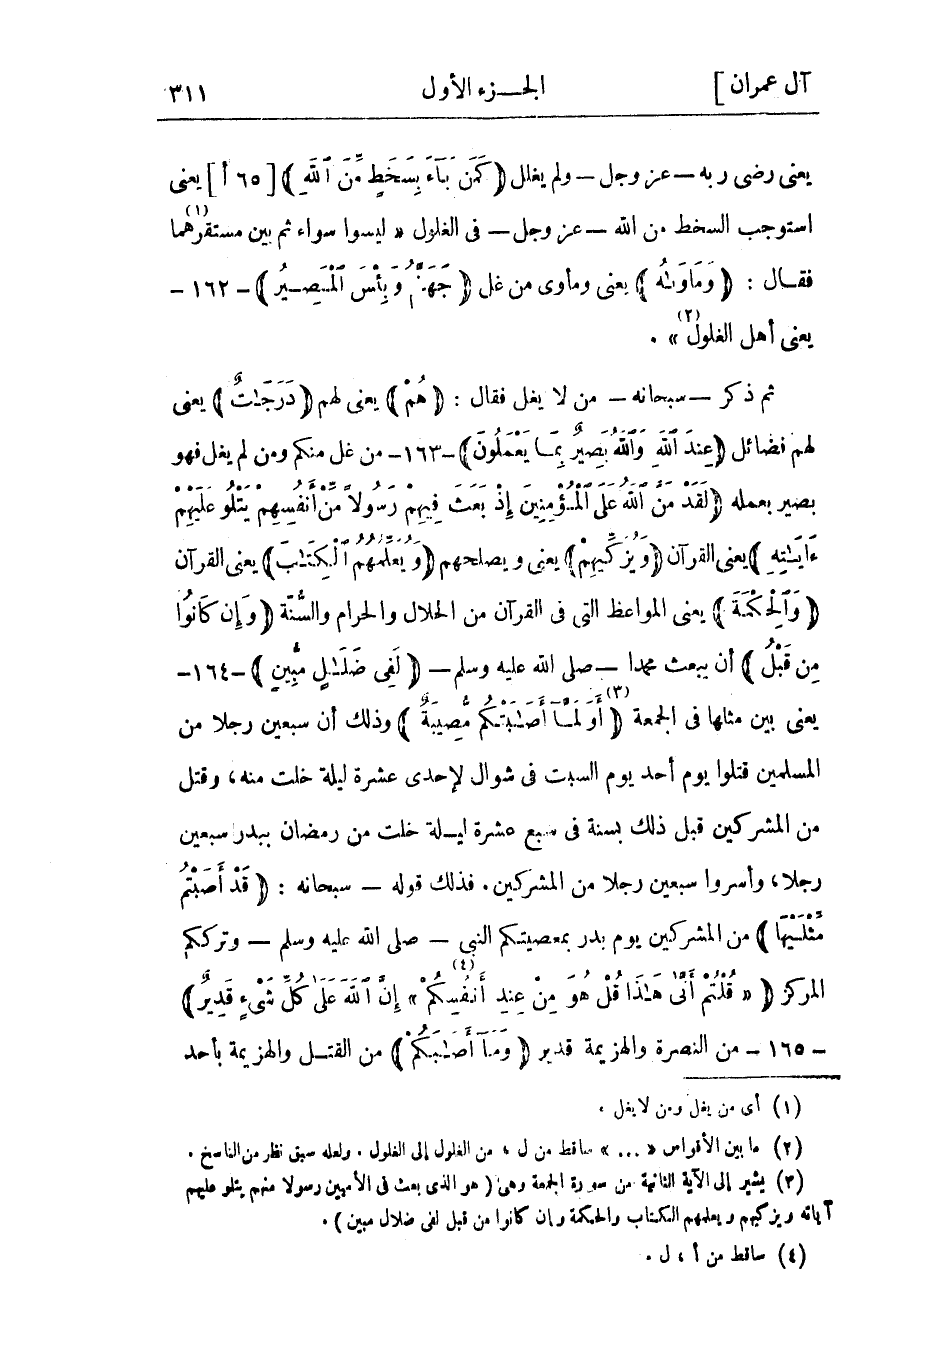 آل عمران ] الجـزء الأول ٣١١
يعنى رضى ربه — عز وجل — ولم يغلل ﴿ كَمَن بَآءَ بِسَخَطٍ مِّنَ ٱللَّهِ ﴾ [ ٦٥ أ ] يعنى
استوجب السخط من الله — عز وجل — فى الغلول « ليسوا سواء ثم بين مستقرهما (١)
فقـال : ﴿ وَمَأْوَىٰهُ ﴾ يعنى ومأوى من غل ﴿ جَهَنَّمُ وَبِئْسَ ٱلْمَصِـيرُ ﴾ - ١٦٢ -
يعنى أهل الغلول (٢) » .
ثم ذكر — سبحانه — من لا يغل فقال : ﴿ هُمْ ﴾ يعنى لهم ﴿ دَرَجَـٰتٌ ﴾ يعنى
لهم فضائل ﴿ عِندَ ٱللَّهِ وَٱللَّهُ بَصِيرٌ بِمَـا يَعْمَلُونَ ﴾ - ١٦٣ - من غل منكم ومن لم يغل فهو
بصير بعمله ﴿ لَقَدْ مَنَّ ٱللَّهُ عَلَى ٱلْمُـؤْمِنِينَ إِذْ بَعَثَ فِيهِمْ رَسُولاً مِّنْ أَنفُسِهِمْ يَتْلُو عَلَيْهِمْ
ءَايَـٰتِهِ ﴾ يعنى القرآن ﴿ وَيُزَكِّيهِمْ ﴾ يعنى ويصلحهم ﴿ وَيُعَلِّمُهُمُ ٱلْكِتَـٰبَ ﴾ يعنى القرآن
﴿ وَٱلْحِكْمَةَ ﴾ يعنى المواعظ التى فى القرآن من الحلال والحرام والسُّنّة ﴿ وَإِن كَانُوا
مِن قَبْلُ ﴾ أن يبعث محمدا — صلى الله عليه وسلم — ﴿ لَفِى ضَلَـٰلٍ مُّبِينٍ ﴾ - ١٦٤ -
يعنى بين مثلها فى الجمعة (٣) ﴿ أَوَلَمَّـآ أَصَـٰبَتْكُم مُّصِيبَةٌ ﴾ وذلك أن سبعين رجلا من
المسلمين قتلوا يوم أحد يوم السبت فى شوال لإحدى عشرة ليلة خلت منه ، وقتل
من المشركين قبل ذلك بسنة فى سبع عشرة ليـلة خلت من رمضان ببدر سبعين
رجلا ، وأسروا سبعين رجلا من المشركين . فذلك قوله — سبحانه : ﴿ قَدْ أَصَبْتُم
مِّثْلَيْهَا ﴾ من المشركين يوم بدر بمعصيتكم النبى — صلى الله عليه وسلم — وترككم
المركز ﴿ « قُلْتُمْ أَنَّىٰ هَـٰذَا قُلْ هُوَ مِنْ عِندِ أَنفُسِكُمْ » (٤) إِنَّ ٱللَّهَ عَلَىٰ كُلِّ شَىْءٍ قَدِيرٌ ﴾
- ١٦٥ - من النصرة والهزيمة قدير ﴿ وَمَآ أَصَـٰبَكُمْ ﴾ من القتـل والهزيمة بأحد
(١) أى من يغل ومن لا يغل .
(٢) ما بين الأقواس « ... » ساقط من ل ، من الغلول إلى الغلول . ولعله سبق نظر من الناسخ .
(٣) يشير إلى الآية الثانية من سورة الجمعة وهى ( هو الذى بعث فى الأميين رسولا منهم يتلو عليهم
آياته ويزكيهم ويعلمهم الكتاب والحكمة وإن كانوا من قبل لفى ضلال مبين ) .
(٤) ساقط من أ ، ل .